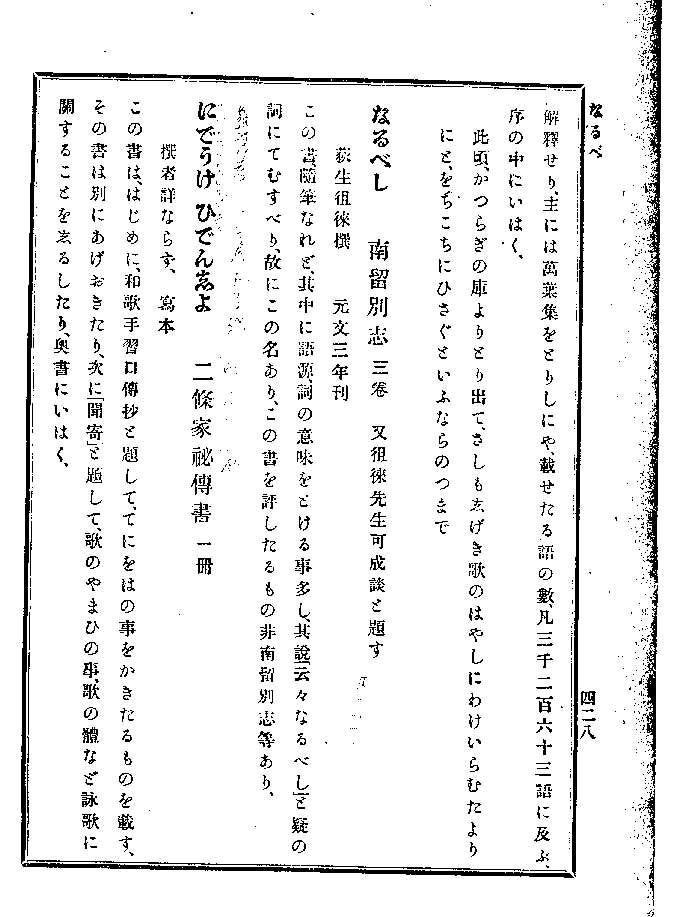 なるべ
四二八
解釋せり、主には萬葉集をとりしにや、載せたる語の數、凡三千二百六十三語に及ぶ、
序の中にいはく、
此頃、かつらぎの庫よりとり出て、さしも志げき歌のはやしにわけいらむたより
にと、をちこちにひさぐといふならのつまで
なるべし　南留別志 三卷　又徂徠先生可成談と題す
荻生徂徠撰　元文三年刊
この書、隨筆なれど、其中に語源、詞の意味をとける事多し、其說「云々なるべし」と疑の
詞にてむすべり、故にこの名あり、この書を評したるもの非南留別志等あり、
にでうけ ひでん志よ　二條家祕傳書 一冊
撰者詳ならず、寫本
この書は、はじめに、和歌手習口傳抄と題して、てにをはの事をかきたるものを載す、
その書は別にあげおきたり、次に「聞寄」と題して、歌のやまひの事、歌の體など詠歌に
關することを志るしたり、奧書にいはく、